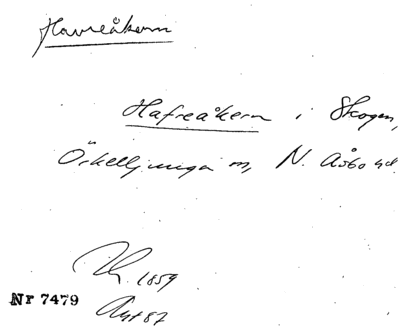 Havreåkern
Hafreåkern i Skogen,
Örkelljunga sn, N. Åsbo hd.
1859
Nr 7479